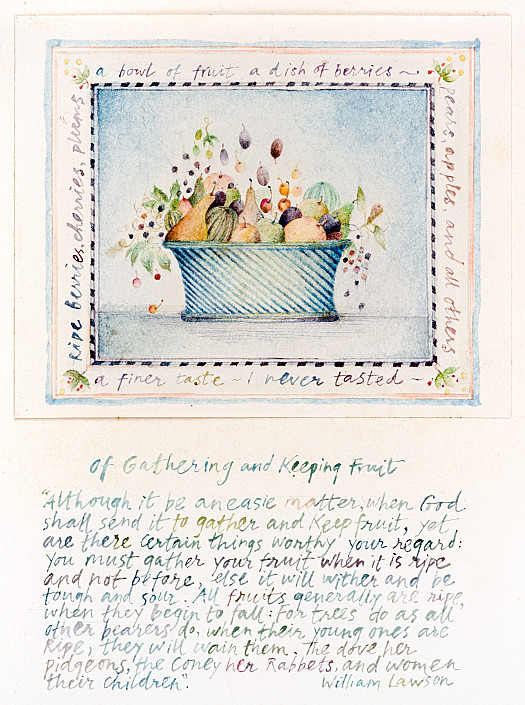 a bowl of fruit a dish of berries ~
pears, apples, and all others
Ripe berries, cherries, plums
a finer taste ~ I never tasted ~
Of Gathering and Keeping Fruit
"Although it be an easie matter, when God
shall send it to gather and Keep fruit, yet
are there certain things worthy your regard:
You must gather your fruit when it is ripe
and not before, else it will wither and be
tough and sour. All fruits generally are ripe,
when they begin to fall: for trees do as all
other bearers do, when their young ones are
Ripe, they will wain them. The dove her
pidgeons, the Coney her Rabbets, and women
their children".
William Lawson